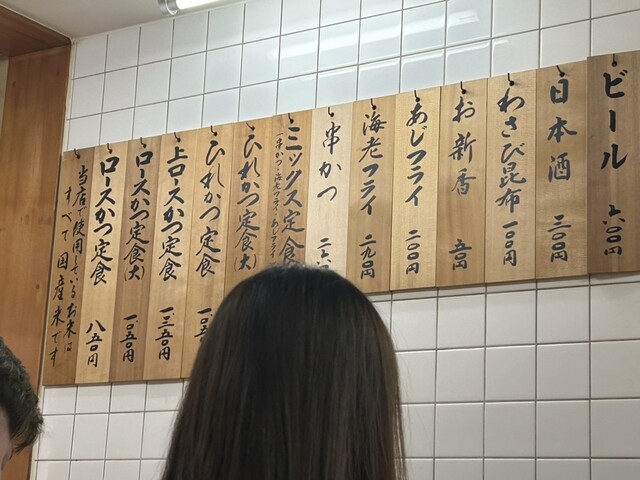 ビール 六〇〇円
日本酒 三〇〇円
わさび昆布 一〇〇円
お新香 五〇円
あじフライ 二〇〇円
海老フライ 二九〇円
串かつ
ミックス定食
(一串かつ・海老フライ・あじフライ
ひれかつ定食(大)
ひれかつ定食
上ロースかつ定食 一、三五〇円
ロースかつ定食(大) 一、〇五〇円
ロースかつ定食 八五〇円
当店で使用しているお米は
すべて国産米です